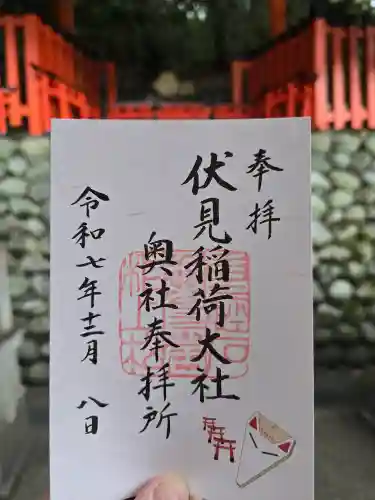 奉拝
伏見稲荷大社
奥社奉拝所
令和七年十二月八日